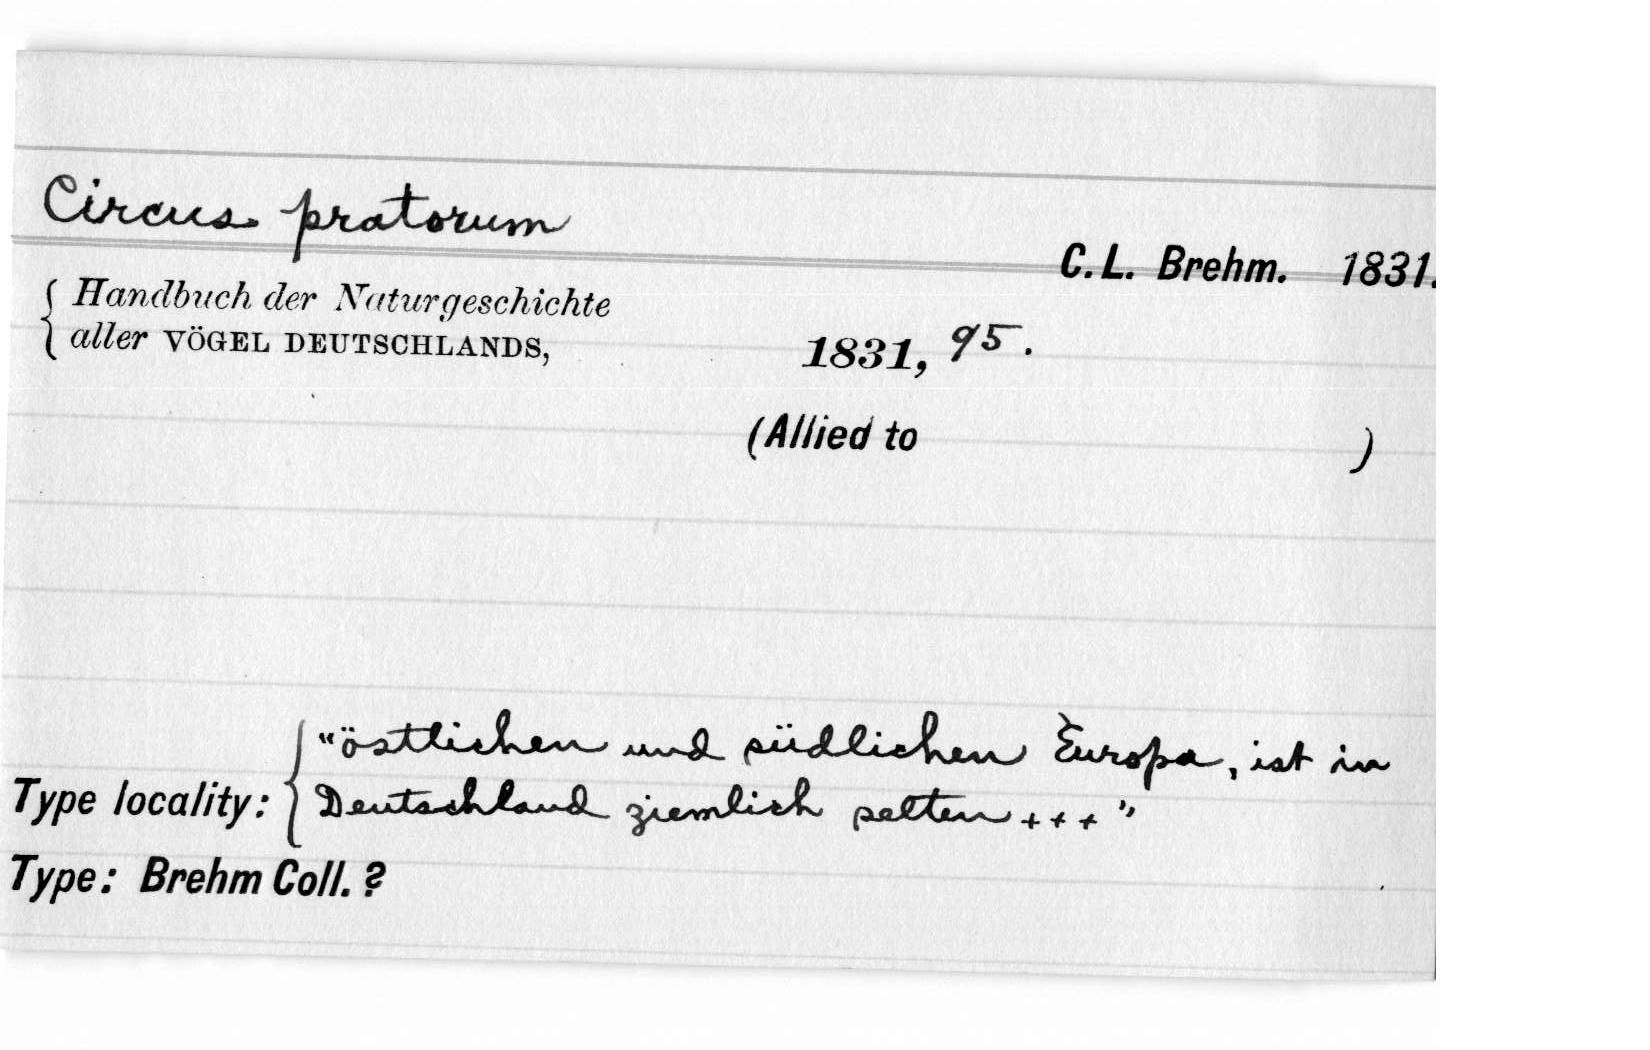 Circus pratorum
C.L. Brehm. 1831.
Handbuch der Naturgeschichte
aller VÖGEL DEUTSCHLANDS, 1831, 95.
(Allied to )
"östlichen und südlichen Europa, ist in
Type locality: Deutschland ziemlich selten + + + "
Type: Brehm Coll. ?